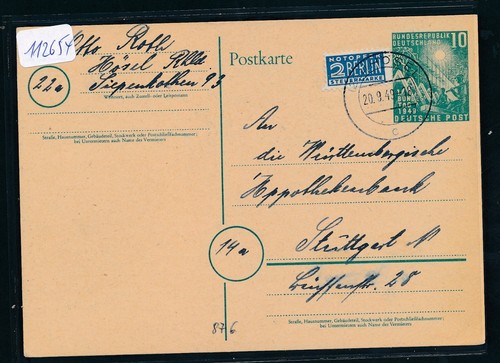 112654
Otto Roth
Hösel
22a
Wohnort, auch Zustell- oder Leitpostamt
Straße, Hausnummer, Gebäudeteil, Stockwerk oder Postschließfachnummer;
bei Untermietern auch Name des Vermieters
Postkarte
NOTOPFER
2 BERLIN
STEUERMARKE
20.9.49
c
BUNDESREPUBLIK
DEUTSCHLAND
10
1949
DEUTSCHE POST
An
die Württembergische
Hypothekenbank
14a
Stuttgart N
28
Straße, Hausnummer, Gebäudeteil, Stockwerk oder Postschließfachnummer;
bei Untermietern auch Name des Vermieters
876